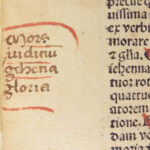 Mors
iudiciu
gehena
gloria
precue q
uissima
ex verbi
morare
⁊ gl̃ia.
iehennа
tuor rot
quattu
atorem
tione.
dam vo